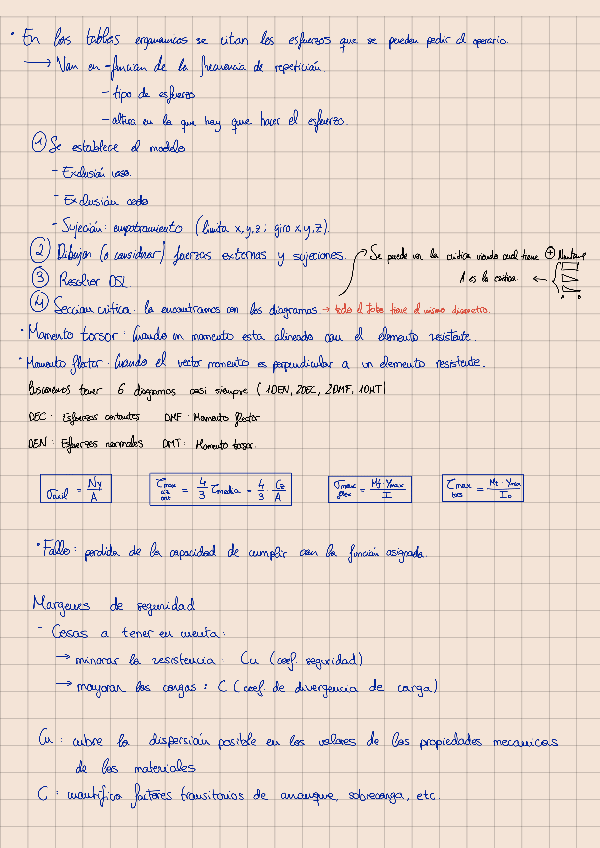 · En las tablas ergonomicas se citan los esfuerzos que se pueden pedir al operario.
→ Van en -funcion de la frecuencia de repetición.
- tipo de esfuerzo
- altura en la que hay que hacer el esfuerzo.
① Se establece el modelo
- Exclusión vaso.
- Exclusión codo
- Sujeción: empotramiento (limita x,y,z; giro x,y,z).
② Dibujan (o considerar) fuerzas externas y sujeciones.
Se puede ver la critica viendo cual tiene ⊕
A es la critica ←
③ Resolver DSL.
④ Seccion critica: la encontramos con los diagramas → todo el tubo tiene el mismo diametro.
· Momento torsor: Cuando un momento esta alineado con el elemento resistente.
· Momento flector: Cuando el vector momento es perpendicular a un elemento resistente.
Buscaremos tener 6 diagramas casi siempre (1DEN, 2DEC, 2DMF, 1DMT)
DEC: Esfuerzos cortantes DMF: Momento flector
DEN: Esfuerzos normales DMT: Momento torsor.
σaxil = Ny/A
τmax cort = 4/3 τmedia = 4/3 · Cz/A
σmax flex = Mf · Ymax / I
τmax tors = Mt · Ymax / Io
· Fallo: perdida de la capacidad de cumplir con la función asignada.
Margenes de seguridad
- Cosas a tener en cuenta:
→ minorar la resistencia: Cu (coef. seguridad)
→ mayorar las cargas: C (coef. de divergencia de carga)
Cu: cubre la dispersión posible en los valores de las propiedades mecanicas
de los materiales
C: cuantifica factores transitorios de arranque, sobrecarga, etc.